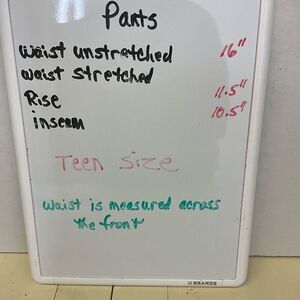 Pants
waist unstretched 16"
waist stretched
Rise 11.5"
inseam 10.5"
Teen Size
waist is measured across
the front
U BRANDS